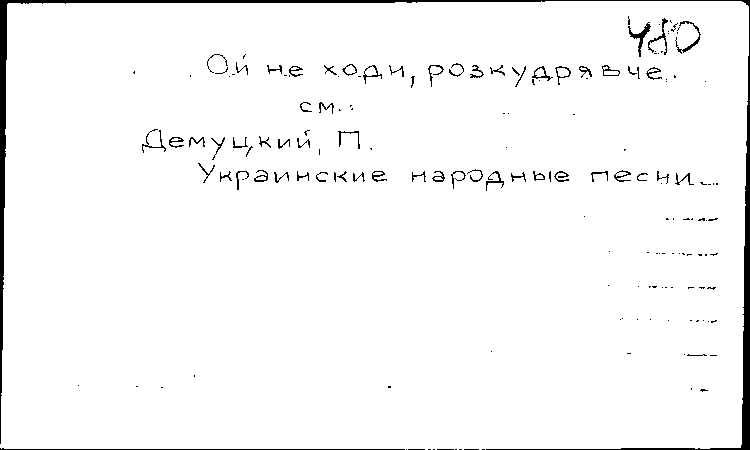 480
Ой не ходи, розкудрявче.
см.:
Демуцкий, П.
Украинские народные песни...